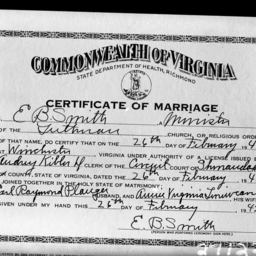 COMMONWEALTH OF VIRGINIA
STATE DEPARTMENT OF HEALTH, RICHMOND
CERTIFICATE OF MARRIAGE
E B Smith Minister
OF THE Lutheran CHURCH, OR RELIGIOUS ORDER
OF THAT NAME, DO CERTIFY THAT ON THE 26th DAY OF February 19
Winchester VIRGINIA UNDER AUTHORITY OF A LICENSE ISSUED
CLERK OF Circuit COURT OF Shenandoah
COUNTY, STATE OF VIRGINIA, DATED THE 26th DAY OF February 19
JOINED TOGETHER IN THE HOLY STATE OF MATRIMONY:
Raymond HUSBAND, AND Annie Virginia HIS WIFE
GIVEN UNDER MY HAND THIS 26th DAY OF February
E. B. Smith